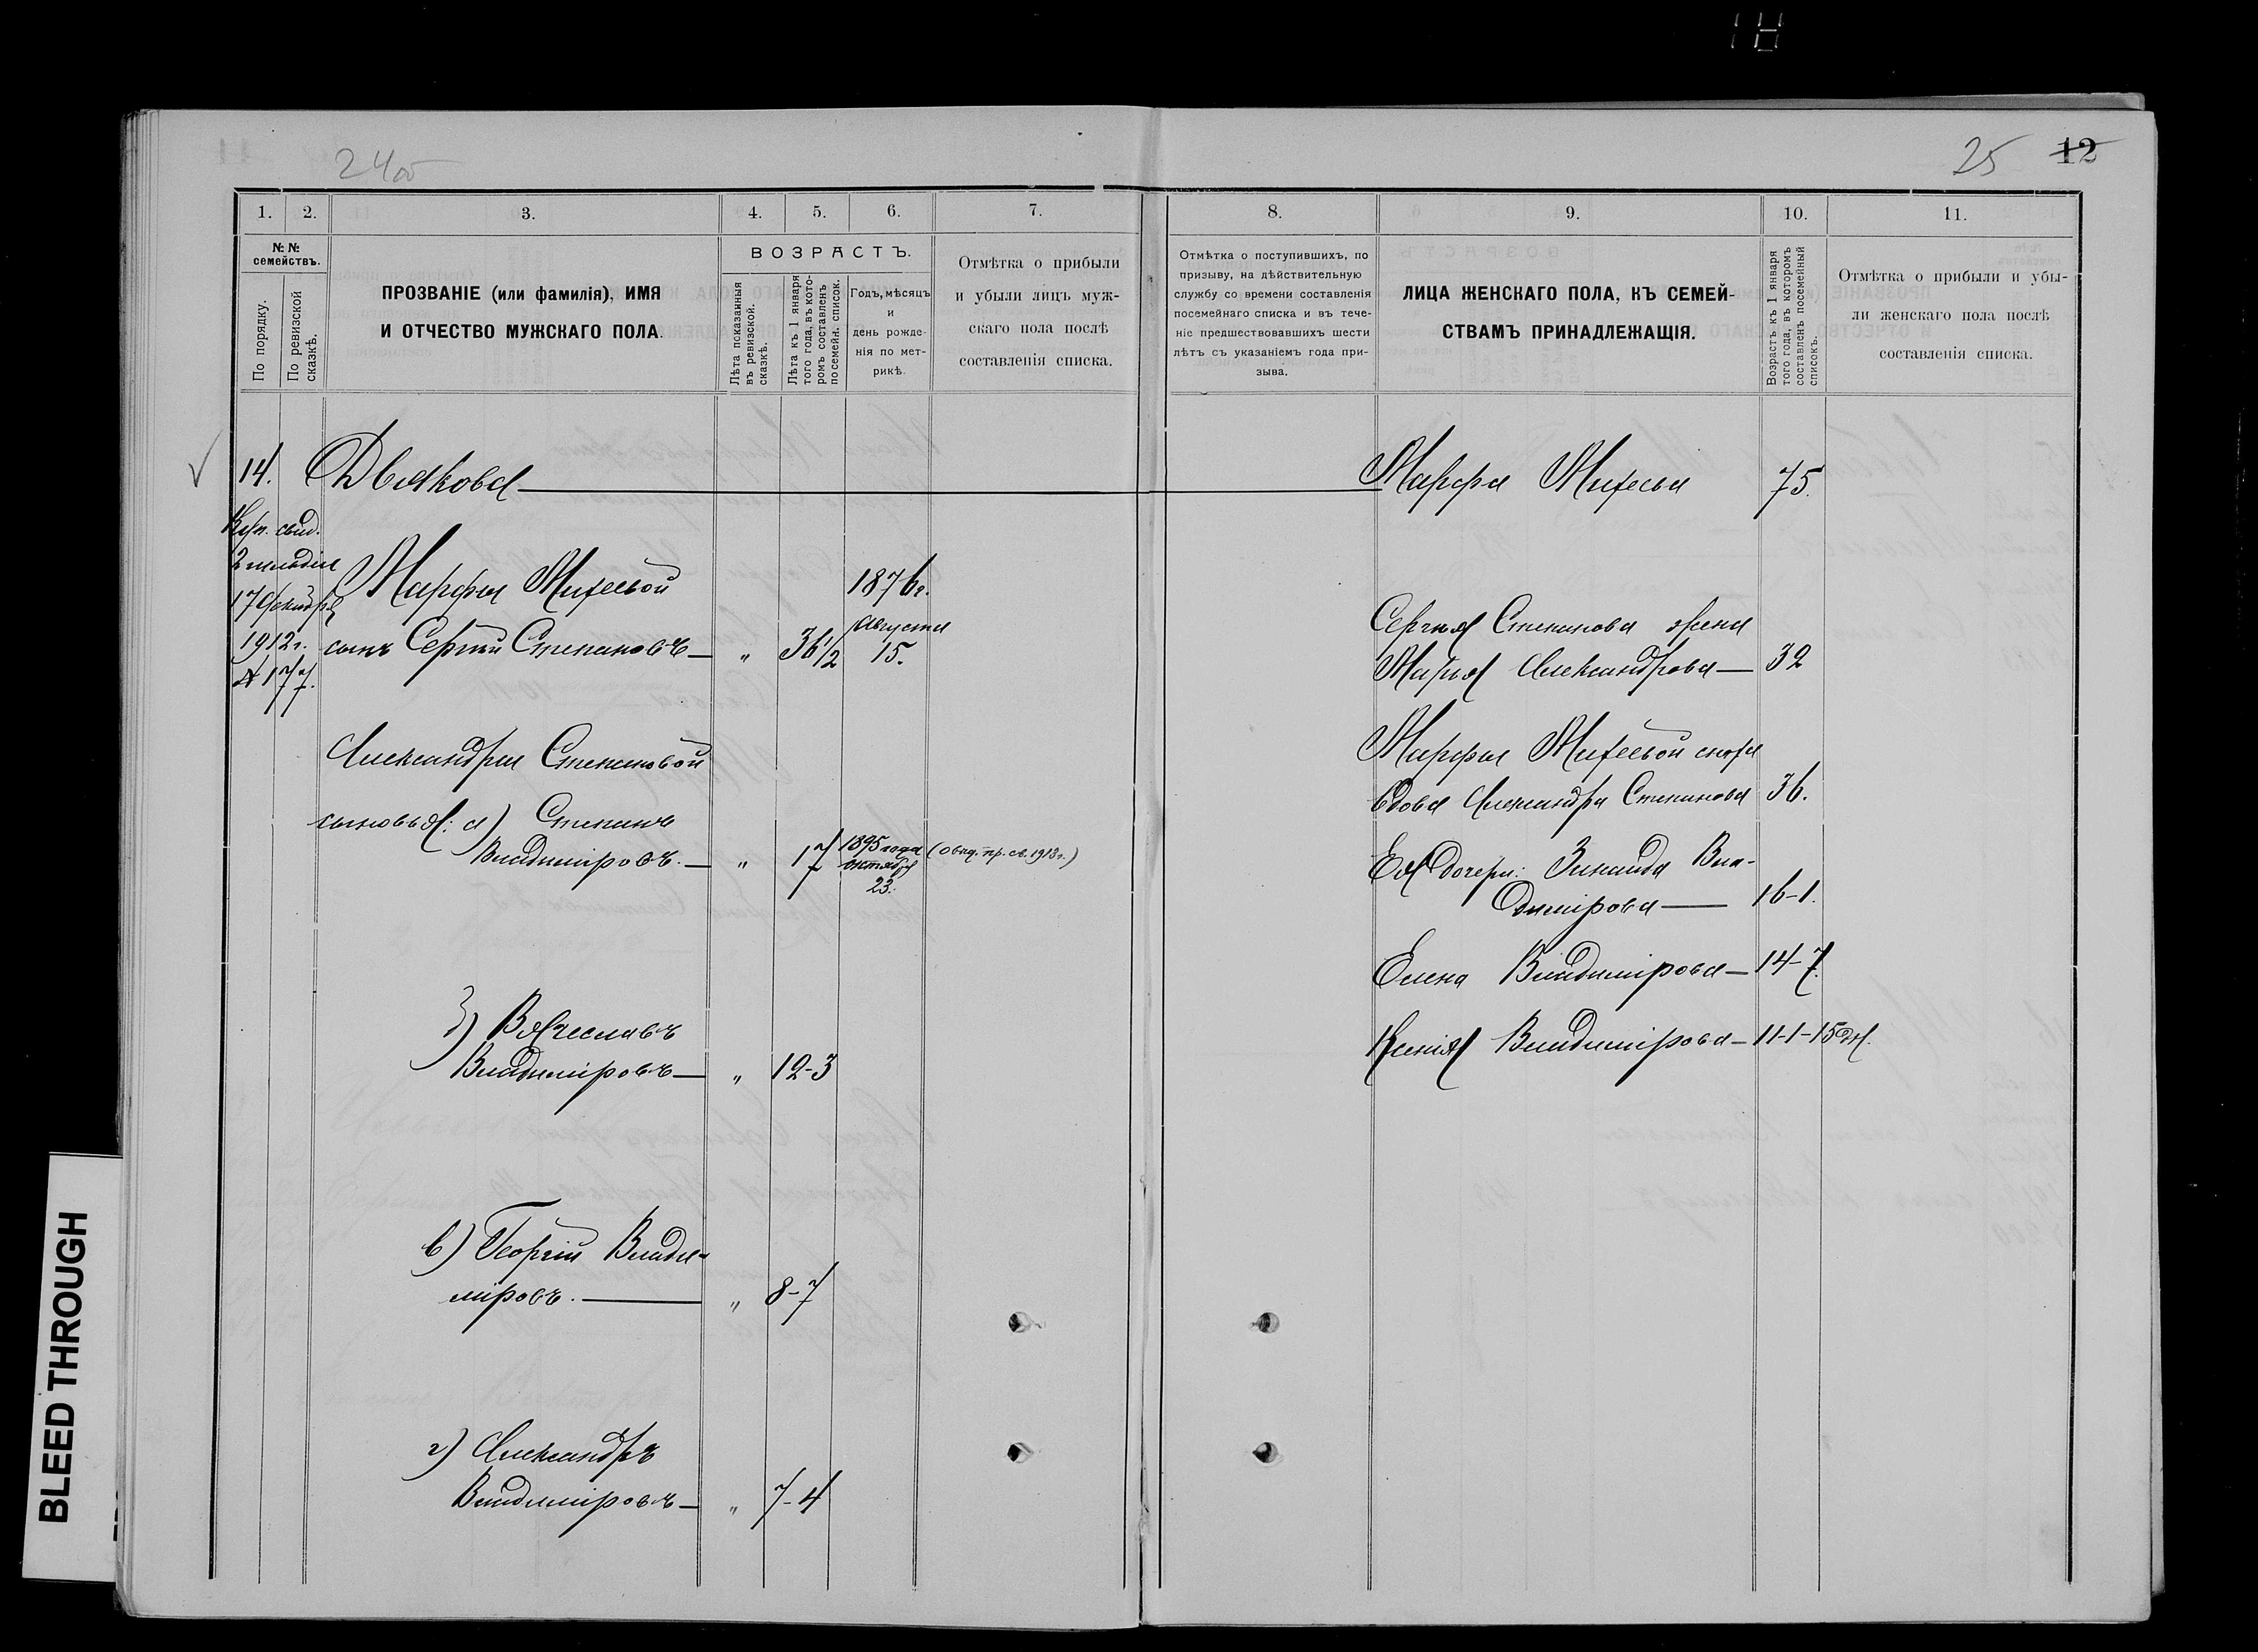 24об
25 12
1. 2. 3. 4. 5. 6. 7.
№ №
семействъ.
По порядку.
По ревизской
сказкѣ.
ПРОЗВАНІЕ (или фамилія), ИМЯ
И ОТЧЕСТВО МУЖСКАГО ПОЛА.
ВОЗРАСТЪ.
Лѣта показанныя
въ ревизской.
сказкѣ.
Лѣта къ 1 января
того года, въ кото-
ромъ составленъ
посемейн. список.
Годъ, мѣсяцъ
и
день рожде-
нія по мет-
рикѣ.
Отмѣтка о прибыли
и убыли лицъ муж-
скаго пола послѣ
составленія списка.
8. 9. 10. 11.
Отмѣтка о поступившихъ, по
призыву, на дѣйствительную
службу со времени составленія
посемейнаго списка и въ тече-
ніе предшествовавшихъ шести
лѣтъ съ указаніемъ года при-
зыва.
ЛИЦА ЖЕНСКАГО ПОЛА, КЪ СЕМЕЙ-
СТВАМЪ ПРИНАДЛЕЖАЩІЯ.
Возрастъ къ 1 января
того года, въ которомъ
составленъ посемейный
списокъ.
Отмѣтка о прибыли и убы-
ли женскаго пола послѣ
составленія списка.
14. Дьякова
Куп. свид.
2 гильдіи
17 Декабря
1912 г.
№ 177.
Марфы Михеевой
сынъ Сергѣй Степановъ — " 36 1/2
1876 г.
Августа
15.
Александры Степановой
сыновья: а) Степанъ
Владиміровъ. — " 17
1895 года
октября
23.
(овид. пр. св. 1913 г.)
б) Вячеславъ
Владиміровъ — " 12-3
в) Георгій Влади-
міровъ. — " 8-7
г) Александръ
Владиміровъ — " 7-4
Марфа Михеева 75.
Сергѣя Степанова жена
Марья Александрова — 32
Марфы Михеевой сноха
вдова Александра Степанова 36.
Ея дочери: Зинаида Вла-
димірова — 16-1.
Елена Владимірова — 14-7.
Ксенія Владимірова — 11-1-15 дн.
BLEED THROUGH